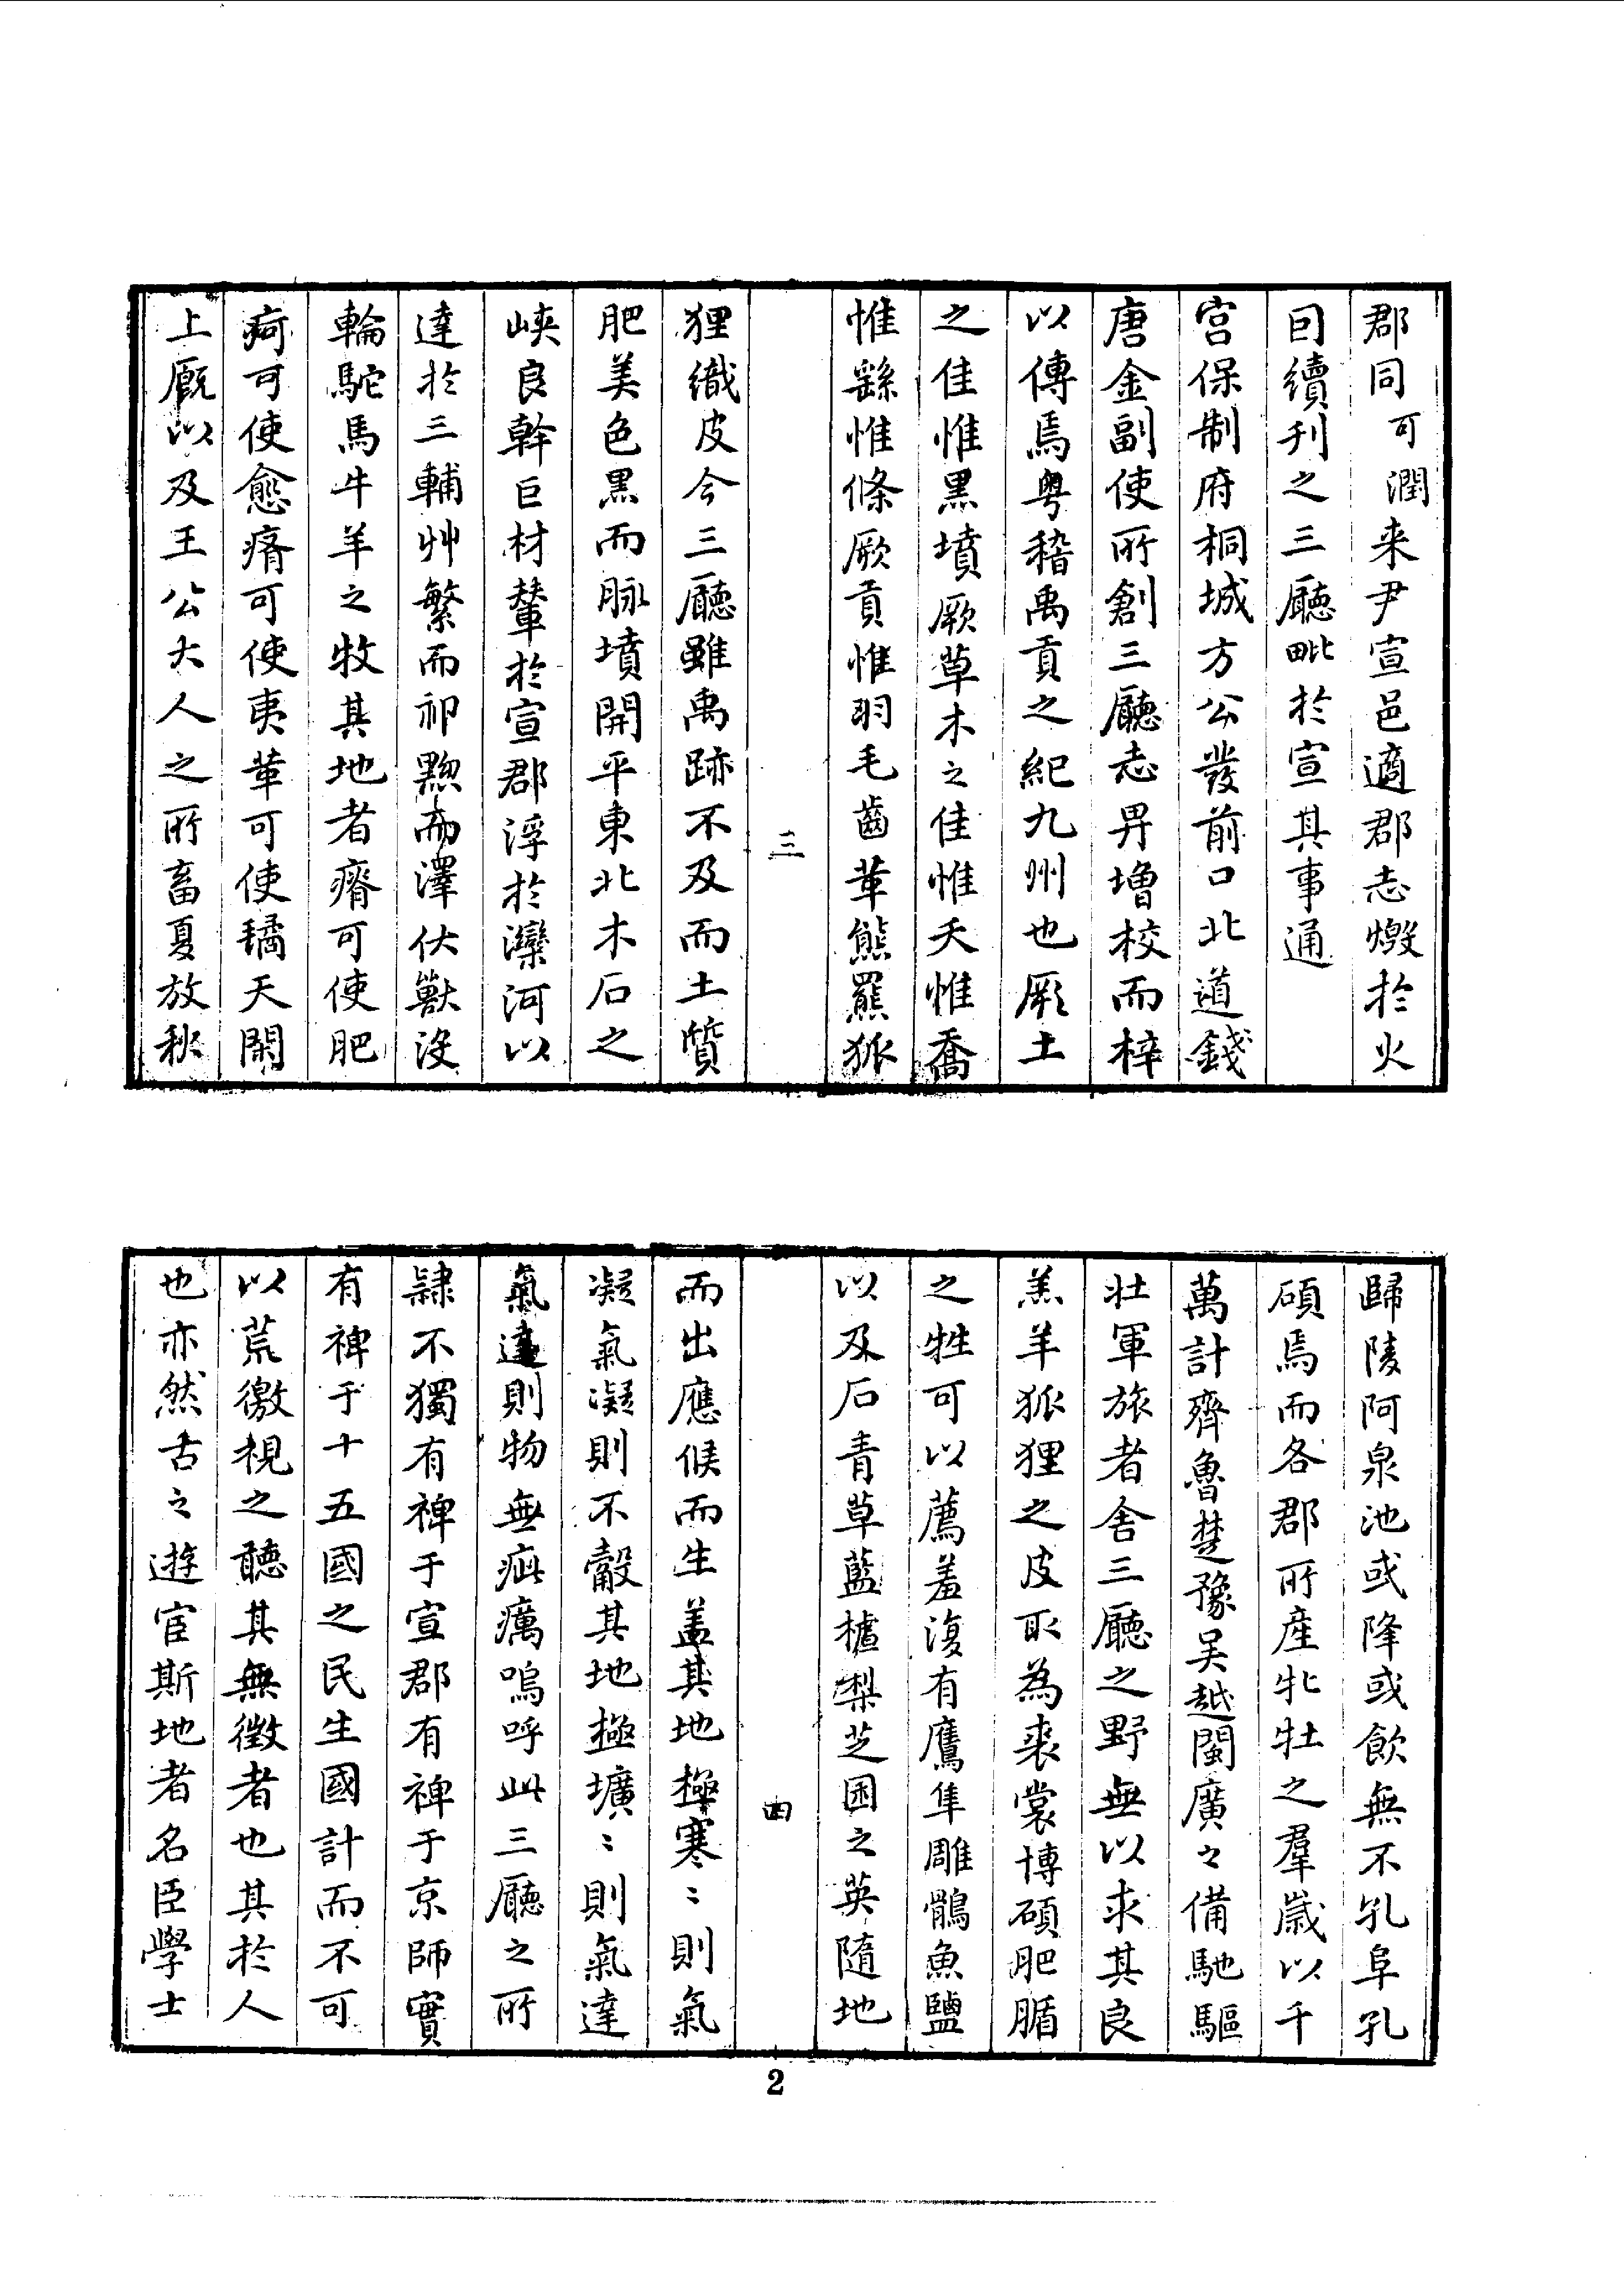 郡同可潤来尹宣邑適郡志燬於火
因續刋之三廳毗於宣其事通
宫保制府桐城方公發前口北道錢
唐金副使所創三廳志畀增校而梓
以傳焉粤稽禹貢之紀九州也厥土
之佳惟黒墳厥草木之佳惟夭惟喬
惟繇惟條厥貢惟羽毛齒革熊羆狐
三
狸織皮今三廳雖禹跡不及而土質
肥美色黒而脉墳開平東北木石之
峡良幹巨材輦於宣郡浮於灤河以
達於三輔艸繁而祁黝而澤伏獸沒
輪駝馬牛羊之牧其地者瘠可使肥
疴可使愈瘠可使夷革可使驈天閑
上厩以及王公大人之所畜夏放秋
歸陵阿泉池或降或飲無不乳阜孔
碩焉而各郡所産牝牡之羣歲以千
萬計齊魯楚豫吴越閩廣々備馳驅
壯軍旅者舍三廳之野無以求其良
羔羊狐狸之皮取為裘裳博碩肥腯
之牲可以薦羞復有鷹隼雕鶻魚鹽
以及石青草藍樝梨芝菌之英隨地
四
而出應候而生盖其地極寒〻則氣
凝氣凝則不觳其地極壙〻則氣達
氣達則物無疵癘嗚呼此三廳之所
隷不獨有禆于宣郡有禆于京師實
有禆于十五國之民生國計而不可
以荒徼視之聽其無徴者也其於人
也亦然古之遊宦斯地者名臣學士
2